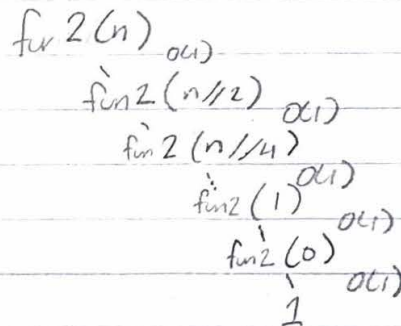 fun2(n) O(1)
fun2(n//2) O(1)
fun2(n//4) O(1)
fun2(1) O(1)
fun2(0) O(1)
1